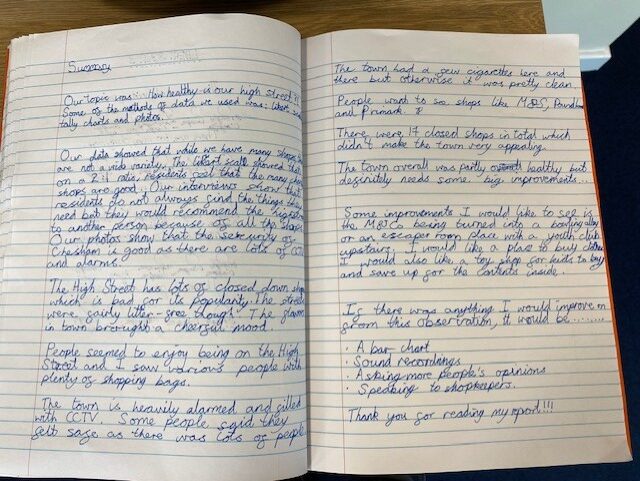 Summary
Our topic was: How healthy is our high street?
Some of the methods of data we used was: Likert scale
tally charts and photos.
Our data showed that while we have many shops, there
are not a wide variety. The likert scale showed that
on a 2:1 ratio, residents feel that the many charity
shops are good. Our interviews show that
residents do not always find the things they
need but they would recommend the highstreet
to another person because of all the shops.
Our photos show that the security of
Chesham is good as there are lots of CCTV
and alarms.
The High Street has lots of closed down shops
which is bad for its popularity. The streets
were fairly litter-free though. The flowers
in town brought a cheerful mood.
People seemed to enjoy being on the High
Street and I saw various people with
plenty of shopping bags.
The town is heavily alarmed and filled
with CCTV. Some people said they
felt safe as there was lots of people
The town had a few cigarettes here and
there but otherwise it was pretty clean.
People want to se shops like M&S, Poundland
and Primark
There were 17 closed shops in total which
didn't make the town very appealing.
The town overall was partly healthy but
definitely needs some big improvements...
Some improvements I would like to see is
the M&Co being turned into a bowling alley
or an escape room place with a youth club
upstairs. I would like a place to buy clothes
I would also like a toy shop for kids to buy
and save up for the contents inside.
If there was anything I would improve on
from this observation, it would be.........
· A bar chart
· Sound recordings
· Asking more people's opinions
· Speaking to shopkeepers.
Thank you for reading my report!!!